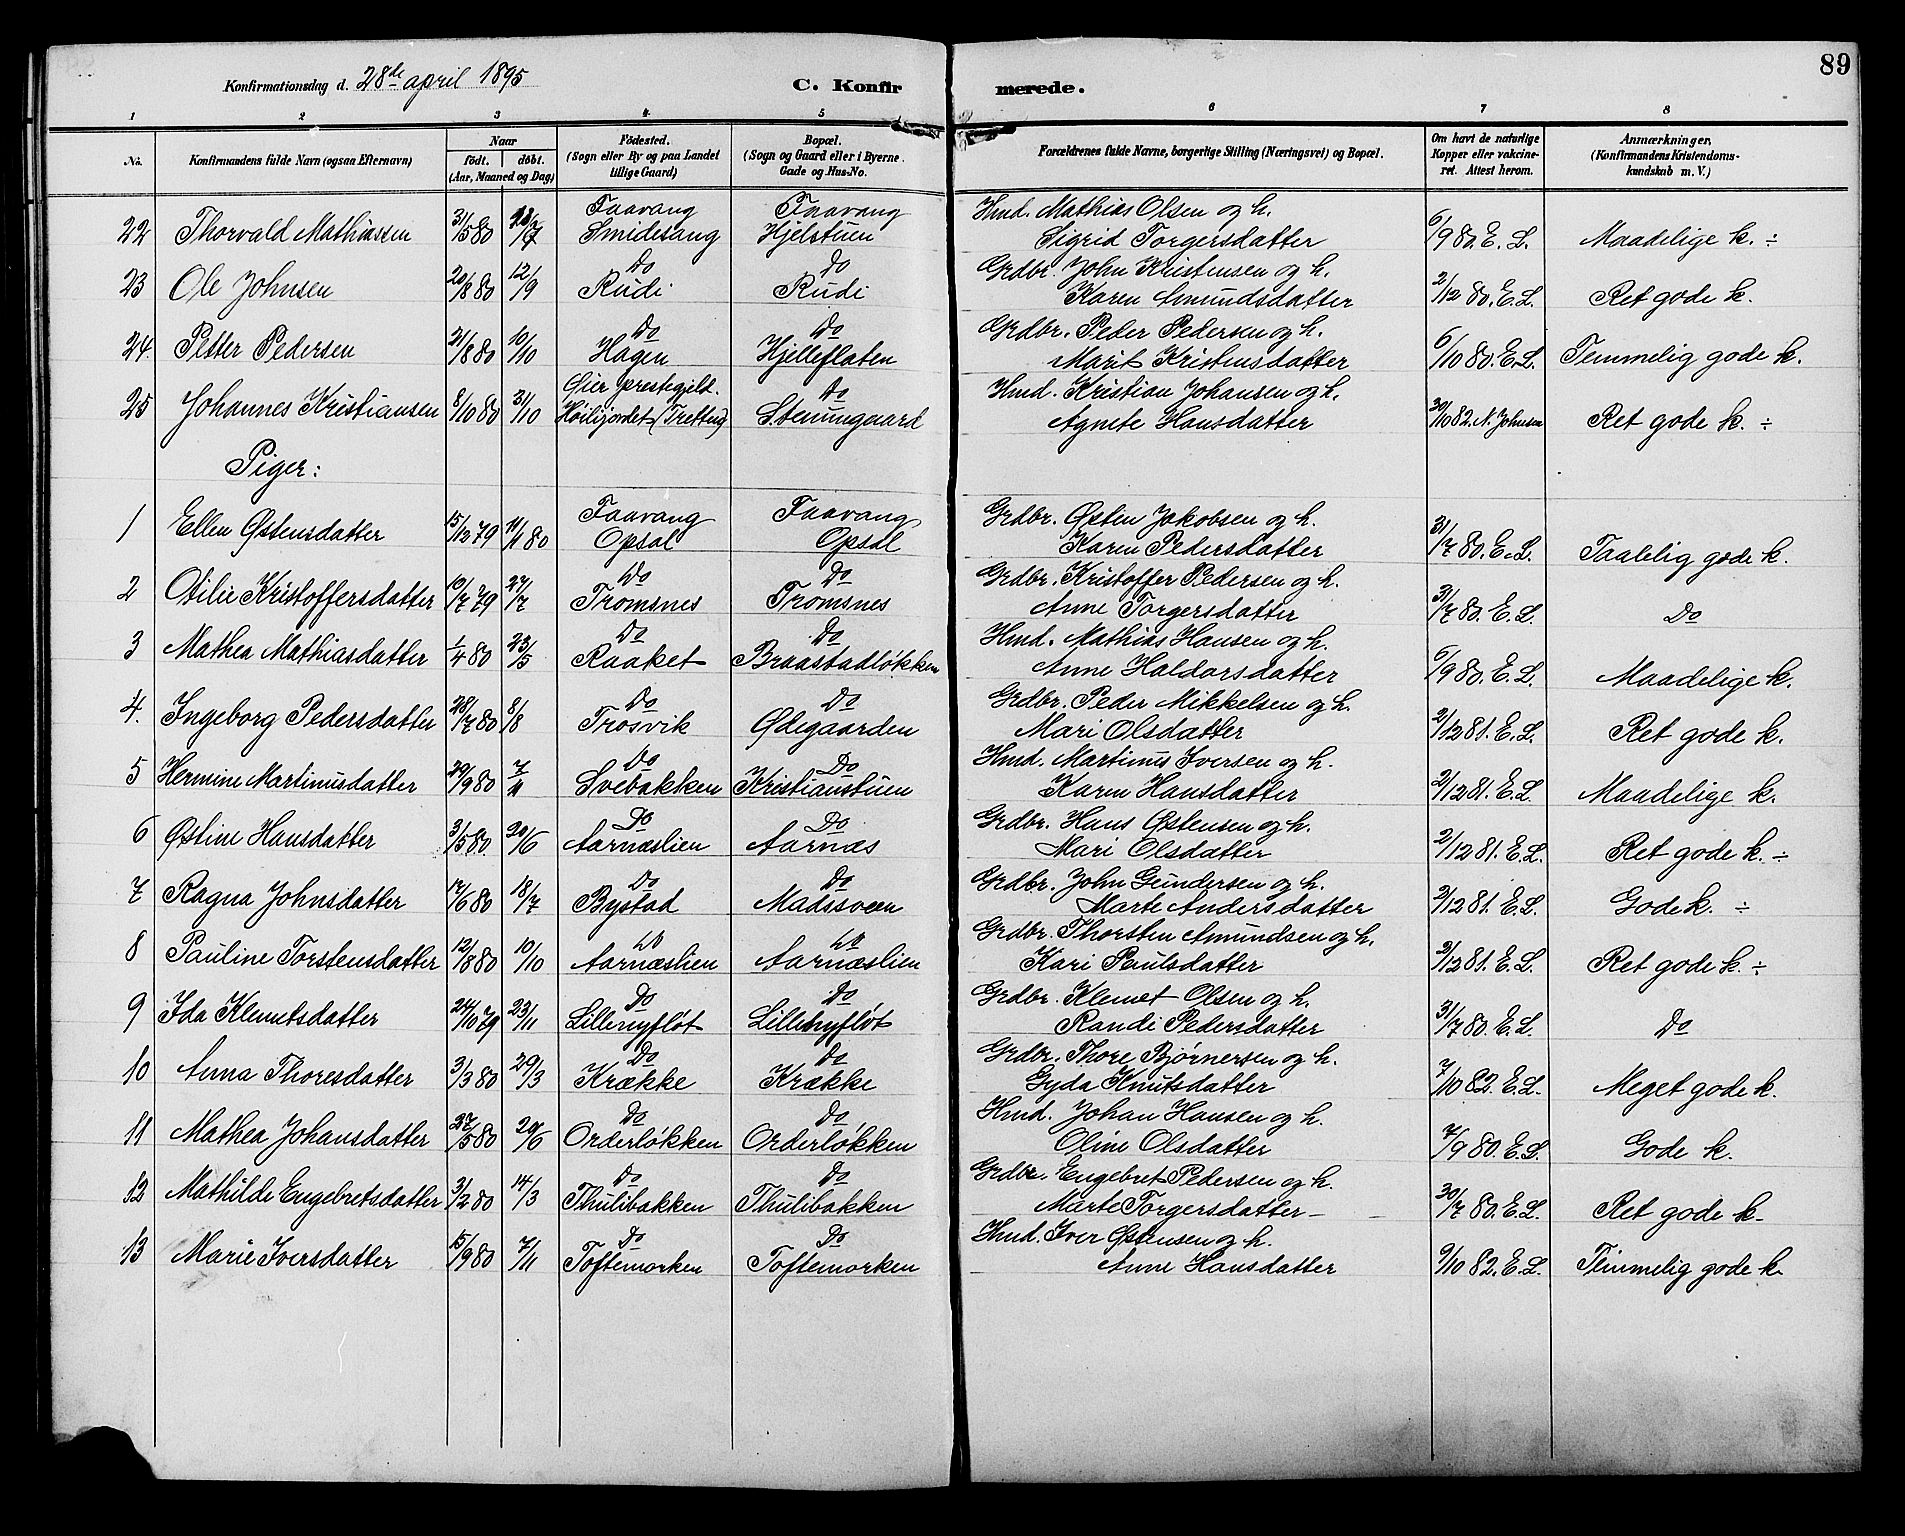 89
Konfirmationsdag d. 28de april 1895
C. Konfirmerede.
1 2 3 4 5 6 7 8
No. Konfirmandens fulde Navn (ogsaa Efternavn) Naar født. døbt. (Aar, Maaned og Dag) Fødested. (Sogn eller By og paa Landet tillige Gaard) Bopæl. (Sogn og Gaard eller i Byerne Gade og Hus-No. Forældrenes fulde Navne, borgerlige Stilling (Næringsvei) og Bopæl. Om havt de naturlige Kopper eller vakcineret. Attest herom. Anmærkninger. (Konfirmandens Kristendomskundskab m. V.)
22 Thorvald Mathiassen 31/5 80 /7 Faavang Smidesang Faavang Hjelstuen Hmd. Mathias Olsen og h. Sigrid Torgersdatter 6/9 80. E. L. Maadelige k. ÷
23 Ole Johnsen 20/8 80 12/9 Do Rudi Do Rudi Grdbr. John Kristensen og h. Karen Amundsdatter 2/12 80. E. L. Ret gode k.
24. Petter Pedersen 21/8 80 10/10 Do Hagen Do Kjelleflaten Grdbr. Peder Pedersen og h. Marit Kristensdatter 6/10 80. E. L. Temmelig gode k.
25 Johannes Kristiansen 8/10 80 31/10 Øier prestegjeld. Høilijordet (Tretten) Do Stenumgaard Hmd. Kristian Johansen og h. Agnete Hansdatter 30/10 82. N. Johnsen Ret gode k. ÷
Piger:
1 Ellen Østensdatter 15/12 79 11/1 80 Faavang Opsal Faavang Opsal Grdbr. Østen Jakobsen og h. Karen Pedersdatter 31/7 80. E. L. Taalelig gode k.
2 Otilie Kristoffersdatter 10/7 79 27/7 Do Tromsnes Do Tromsnes Grdbr. Kristoffer Pedersen og h. Anne Torgersdatter 31/7 80. E. L. Do
3 Mathea Mathiasdatter 1/4 80 23/5 Do Raaket Do Braastadløkken Hmd. Mathias Hansen og h. Anne Haldorsdatter 6/9 80. E. L. Maadelige k.
4. Ingeborg Pedersdatter 28/7 80 8/8 Do Trosvik Do Ødegaarden Grdbr. Peder Mikkelsen og h. Mari Olsdatter 2/12 81. E. L. Ret gode k.
5 Hermine Martinusdatter 29/9 80 7/11 Do Svebakken Do Kristianstuen Hmd. Martinus Iversen og h. Karen Hansdatter 2/12 81. E. L. Maadelige k.
6 Østine Hansdatter 3/5 80. 20/6 Do Aarnæslien Do Aarnæs Grdbr. Hans Østensen og h. Mari Olsdatter 2/12 81. E. L. Ret gode k. ÷
7 Ragna Johnsdatter 17/6 80 18/7 Do Bystad Do Madssveen Grdbr. John Gundersen og h. Marte Andersdatter 2/12 81. E. L. Gode k. ÷
8 Pauline Torstensdatter 12/8 80 10/10 Do Aarnæslien Do Aarnæslien Grdbr. Thorsten Amundsen og h. Kari Paulsdatter 2/12 81. E. L. Ret gode k. ÷
9 Ida Klemetsdatter 24/10 79 23/11 Do Lillenyfløt Do Lillenyfløt Grdbr. Klemet Olsen og h. Randi Pedersdatter 31/7 80. E. L. Do
10 Anna Thoresdatter 3/3 80 29/3 Do Krække Do Krække Grdbr. Thore Bjørnersen og h. Gyda Knutsdatter 7/10 82. E. L. Meget gode k.
11 Mathea Johansdatter 27/5 80 20/6 Do Orderløkken Do Orderløkken Hmd. Johan Hansen og h. Oline Olsdatter 7/9 80. E. L. Gode k.
12 Mathilde Engebretsdatter 3/2 80 14/3 Do Thulibakken Do Thulibakken Grdbr. Engebret Pedersen og h. Marte Torgersdatter - 30/7 80. E. L. Ret gode k.
13 Marie Iversdatter 15/9 80 7/11 Do Toftemorken Do Toftemorken Hmd. Iver Østensen og h. Anne Hansdatter 9/10 82. E. L. Temmelig gode k.